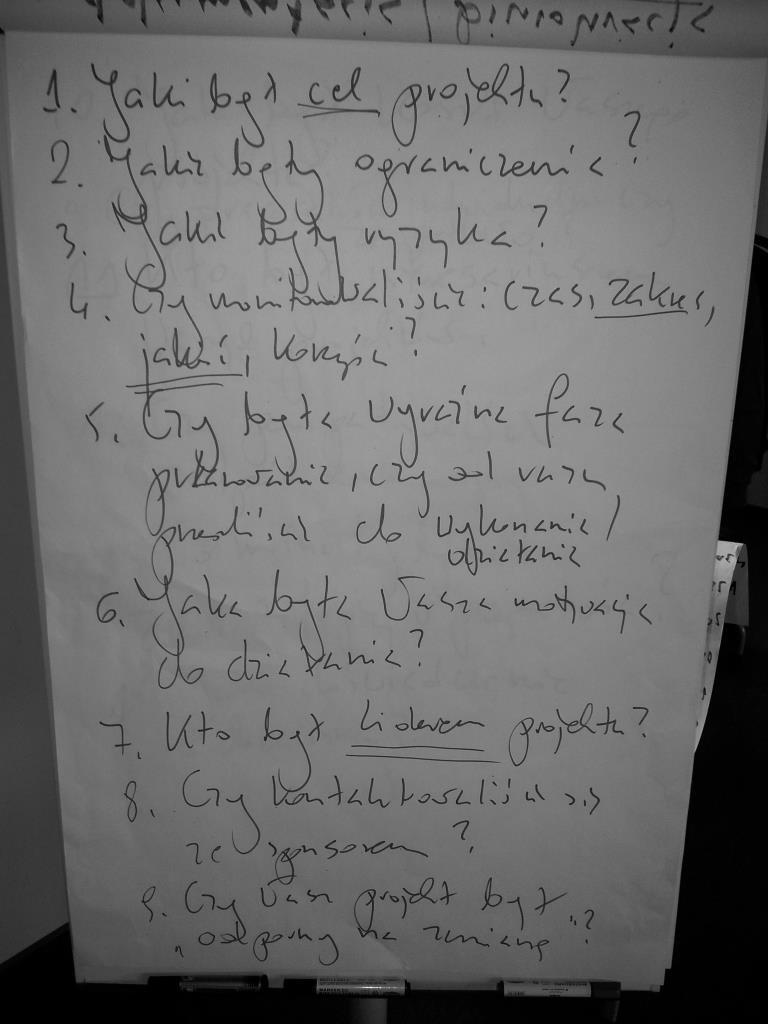 1. Jaki był cel projektu?
2. Jakie były ograniczenia?
3. Jakie były ryzyka?
4. Czy monitorowaliście: czas, zakres,
jakość, korzyści?
5. Czy była wyraźna faza
planowania, czy od razu
przeszliście do wykonania/
działania
6. Jaka była Wasza motywacja
do działania?
7. Kto był liderem projektu?
8. Czy kontaktowaliście się
ze sponsorem?
9. Czy Wasz projekt był
„odporny na zmianę"?